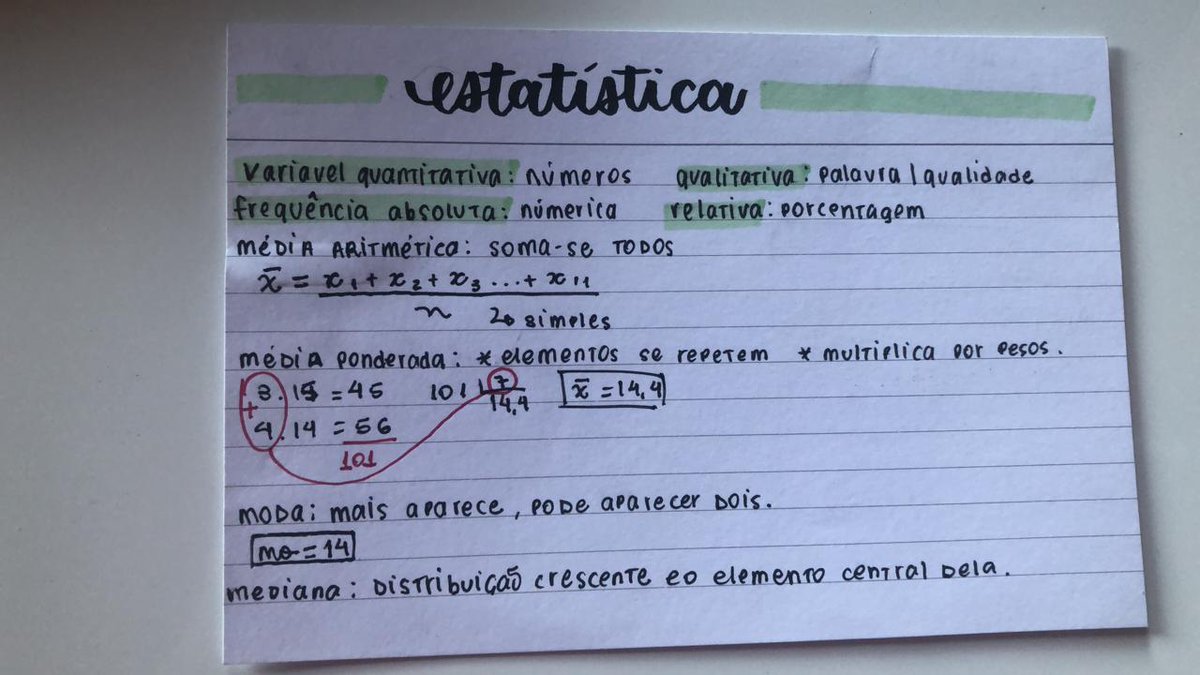 estatística
variavel quantitativa: números qualitativa: palavra / qualidade
frequência absoluta: númerica relativa: porcentagem
média aritmética: soma-se todos
x̄ = x₁ + x₂ + x₃ ... + x₁₁
n simples
média ponderada: * elementos se repetem * multiplica por pesos.
3.15 = 45 101 | 7 x̄ = 14,4
+ 14,4
4.14 = 56
101
moda: mais aparece, pode aparecer dois.
mo = 14
mediana: distribuição crescente e o elemento central dela.